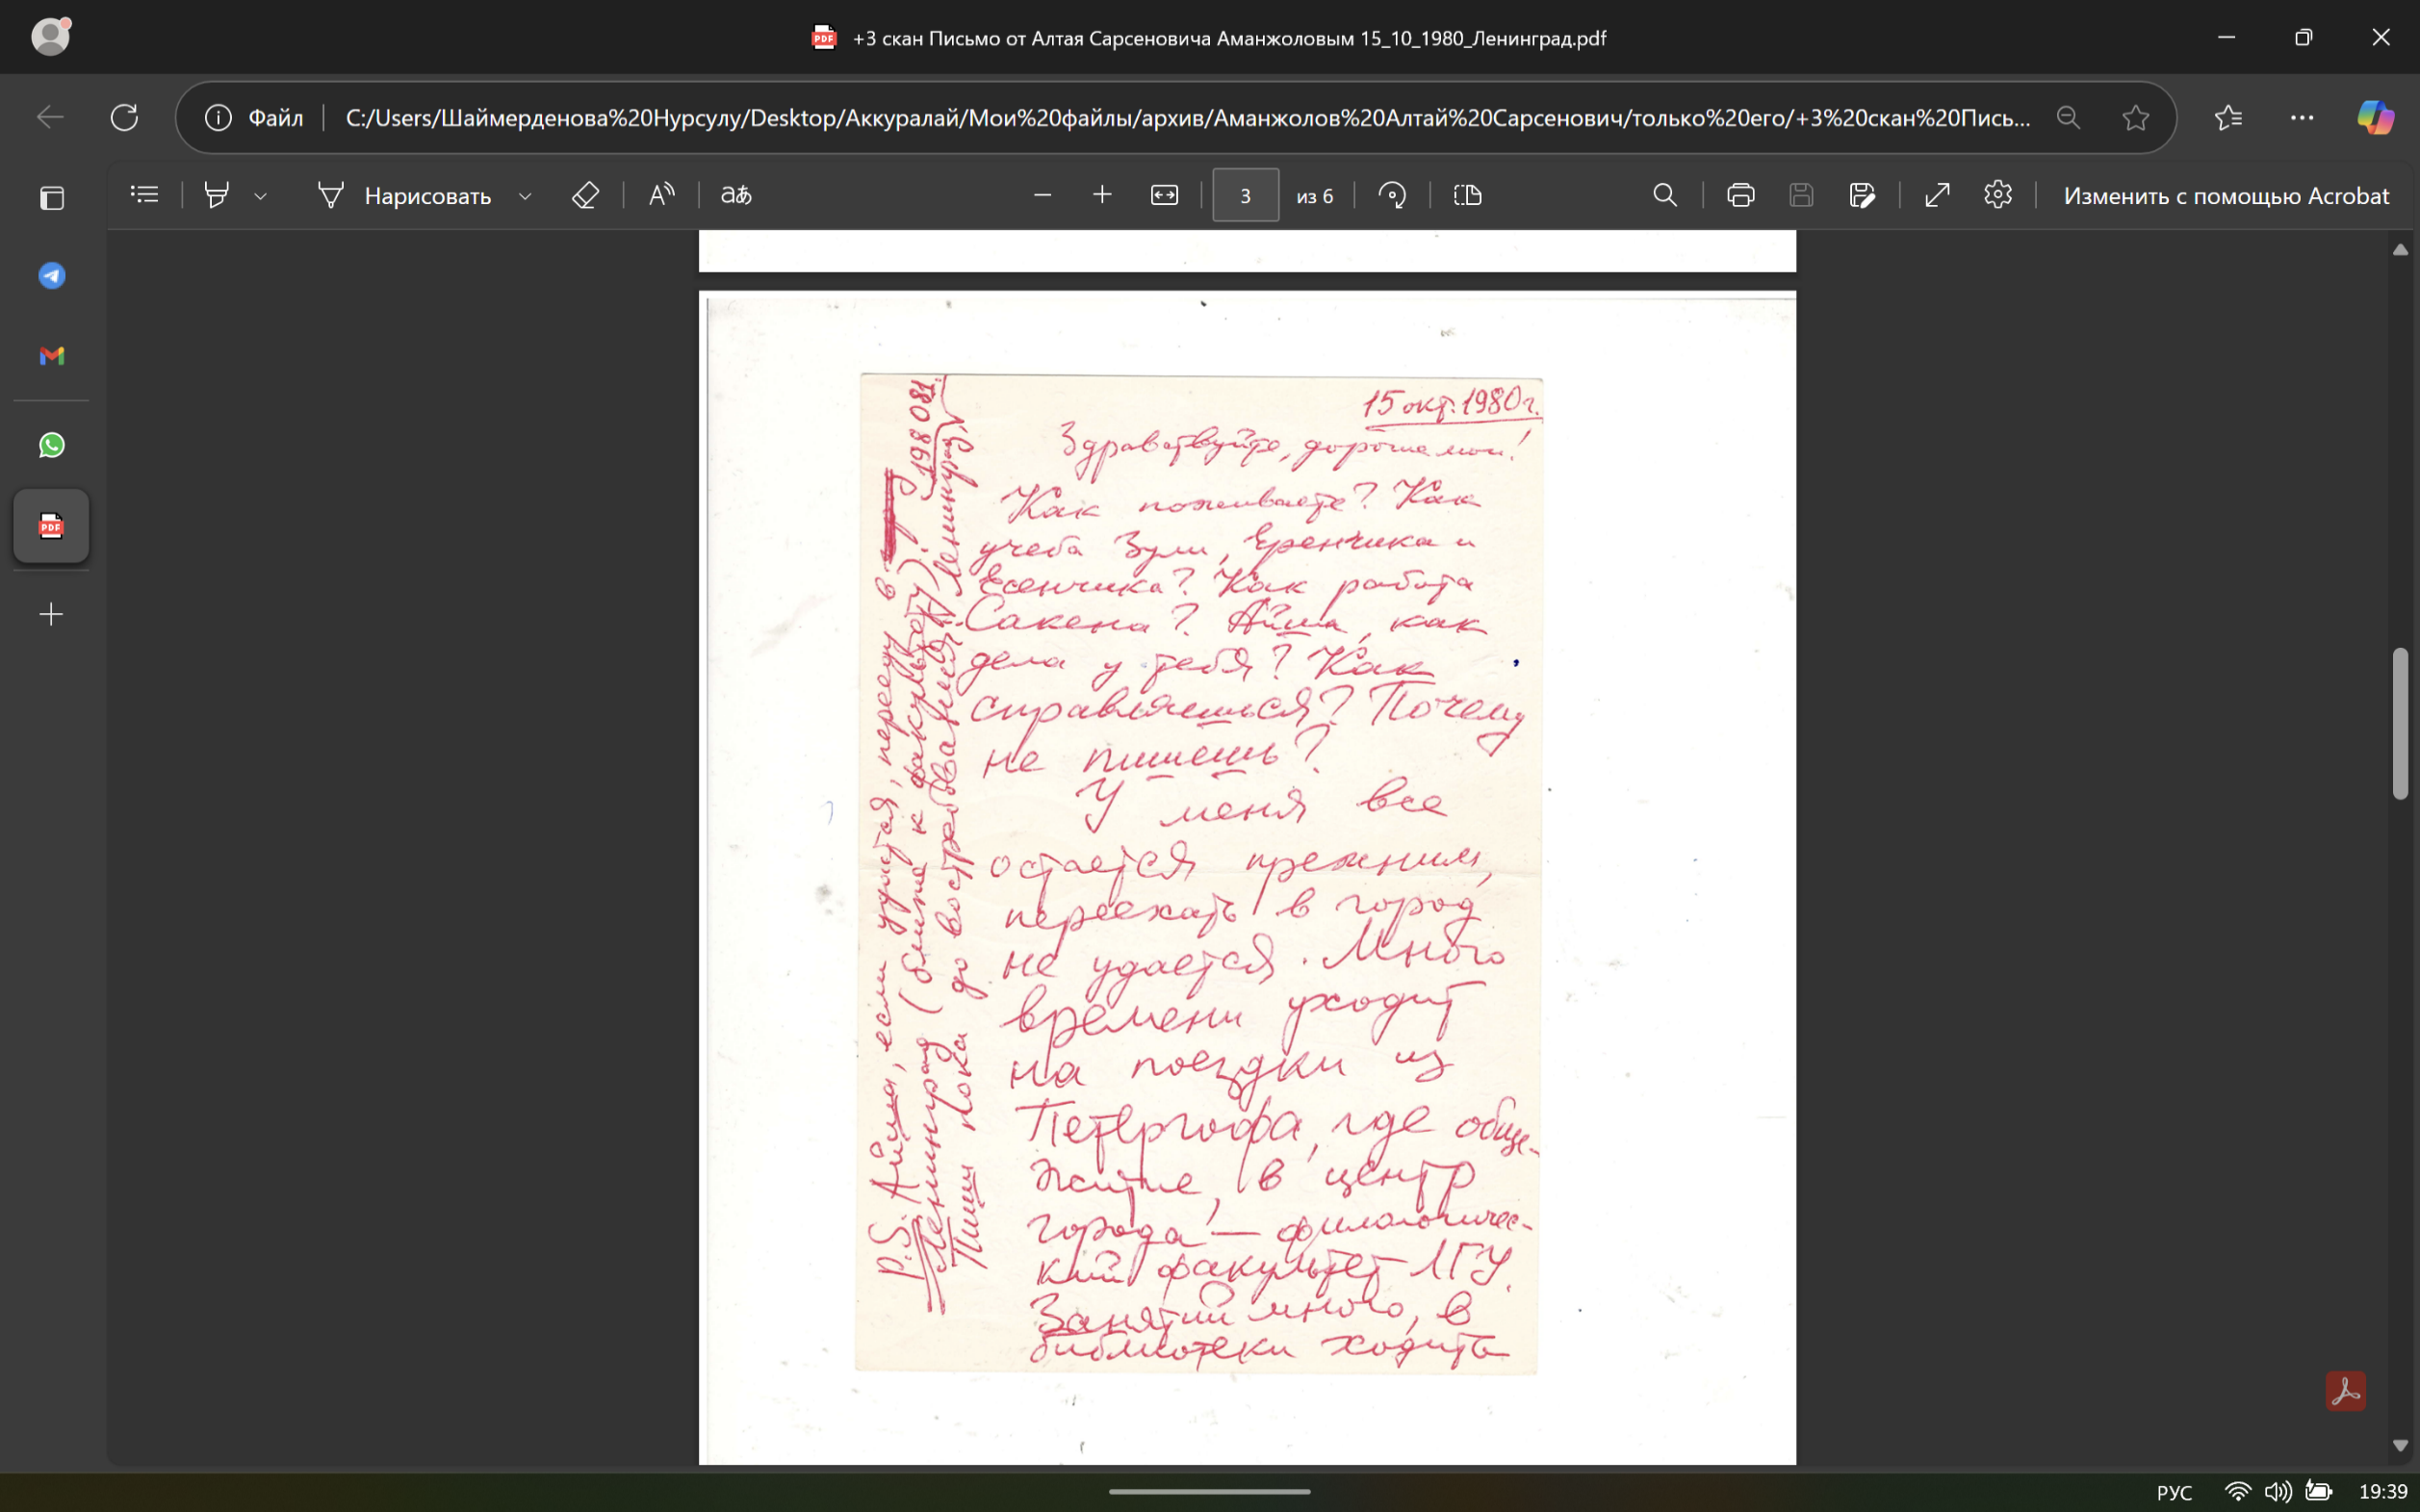 +3 скан Письмо от Алтая Сарсеновича Аманжоловым 15_10_1980_Ленинград.pdf
Файл
C:/Users/Шаймерденова%20Нурсулу/Desktop/Аккуралай/Мои%20файлы/архив/Аманжолов%20Алтай%20Сарсенович/только%20его/+3%20скан%20Пись...
Нарисовать
3 из 6
Изменить с помощью Acrobat
15 окт. 1980 г.
Здравствуйте, дорогие мои!
Как поживаете? Как
учеба Зули, Еренчика и
Есенчика? Как работа
Сакена? Айша, как
дела у тебя? Как
справляешься? Почему
не пишешь?
У меня все
остается прежним,
переехать в город
не удается. Много
времени уходит
на поездки из
Петергофа, где обще-
житие, в центр
города — филологичес-
кий факультет ЛГУ.
Занятий много, в
библиотеки ходить
P.S. Айша, если удастся, перееду в
Ленинград (ближе к факультету).
Пиши пока до востребования: Ленинград,
198081
PDF
РУС
19:39